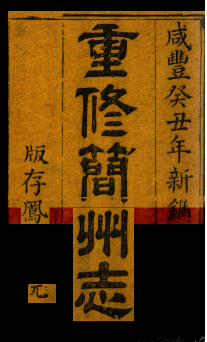 咸豐癸丑年新鐫
重修簡州志
版存鳳
元